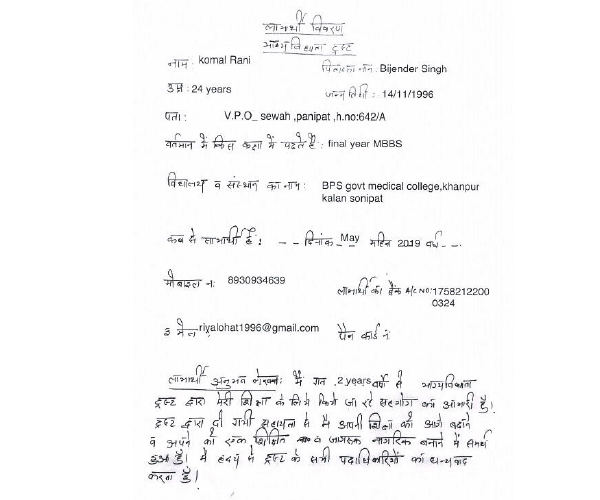 लाभार्थी विवरण
भाग्य विधाता ट्रस्ट
नाम: komal Rani पिता का नाम: Bijender Singh
उम्र: 24 years जन्म तिथी: 14/11/1996
पता: V.P.O_ sewah ,panipat ,h.no:642/A
वर्तमान में किस कक्षा में पढते है: final year MBBS
विद्यालय व संस्थान का नाम: BPS govt medical college,khanpur
kalan sonipat
कब से लाभार्थी है: - - दिनांक May महिन 2019 वर्ष - -.
मोबाइल न: 8930934639 लाभार्थी का बैंक A/C NO:1758212200
0324
ई मेल riyalohat1996@gmail.com पैन कार्ड नं
लाभार्थी अनुभव लेखन: मैं गत ,2 years वर्षो से भाग्यविधाता
ट्रस्ट द्वारा मेरी शिक्षा के लिये किये जा रहे सहयोग का आभारी हूँ।
ट्रस्ट द्वारा दी गयी सहायता से मै अपनी शिक्षा को आगे बढाने
व अपने को एक शिक्षित व जागरूक नागरिक बनाने में समर्थ
हुआ हूँ। मैं हृदय से ट्रस्ट के सभी पदाधिकारियों का धन्यवाद
करता हूँ।